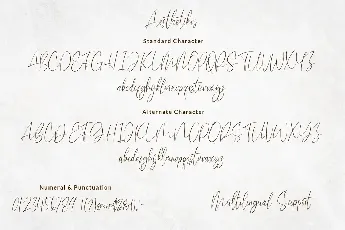 Aesthetiks
Standard Character
ABCDEFGHIJKLMNOPQRSTUVWXYZ
abcdefghijklmnopqrstuvwxyz
Alternate Character
ABCDEFGHIJKLMNOPQRSTUVWXYZ
abcdefghijklmnopqrstuvwxyz
Numeral & Punctuation
0123456789
Multilingual Suport